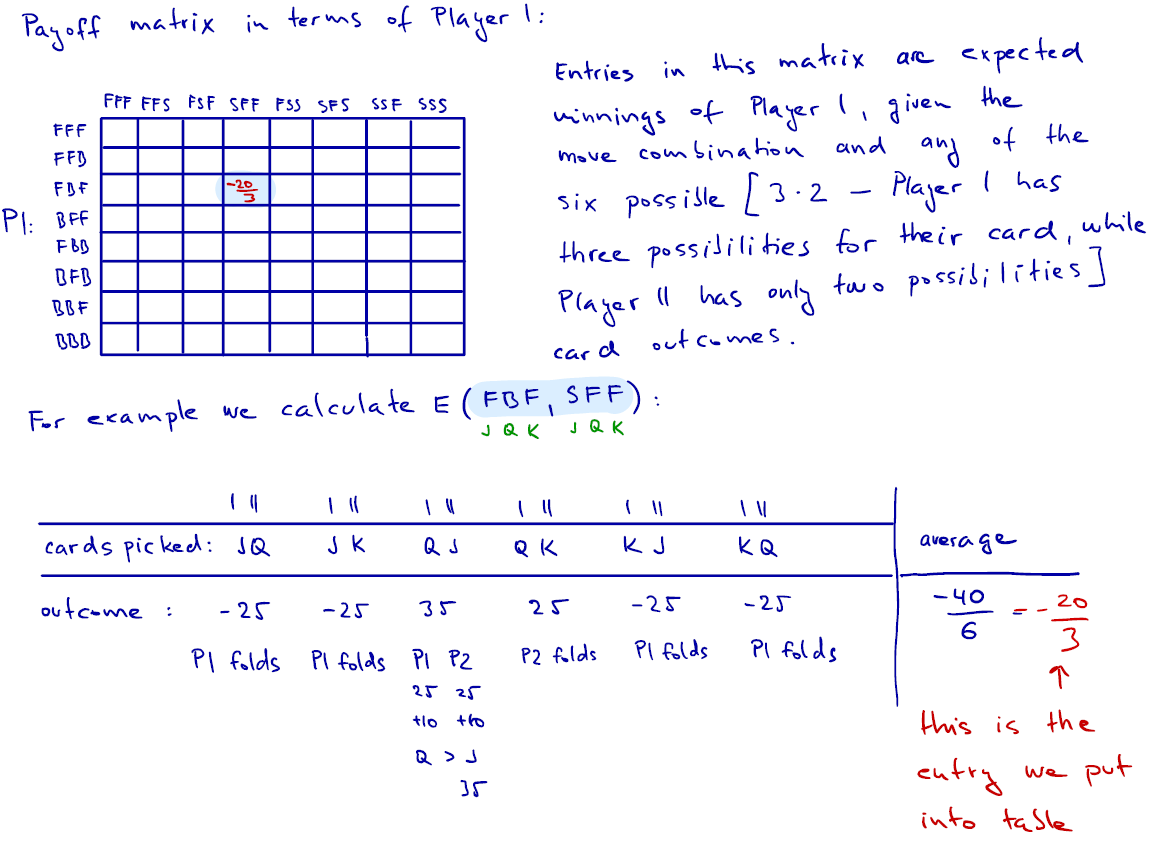 Payoff matrix in terms of Player I:
FFF FFS FSF SFF FSS SFS SSF SSS
FFF
FFB
FBF -20/3
P1: BFF
FBB
BFB
BBF
BBB
Entries in this matrix are expected
winnings of Player I, given the
move combination and any of the
six possible [3·2 – Player I has
three possibilities for their card, while
Player II has only two possibilities]
card outcomes.
For example we calculate E(FBF, SFF):
J Q K J Q K
I II I II I II I II I II I II
cards picked: JQ JK QJ QK KJ KQ average
outcome: -25 -25 35 25 -25 -25 -40/6 = -20/3
P1 folds P1 folds P1 P2 P2 folds P1 folds P1 folds
25 25
+10 +10
Q > J
35
↑
this is the
entry we put
into table